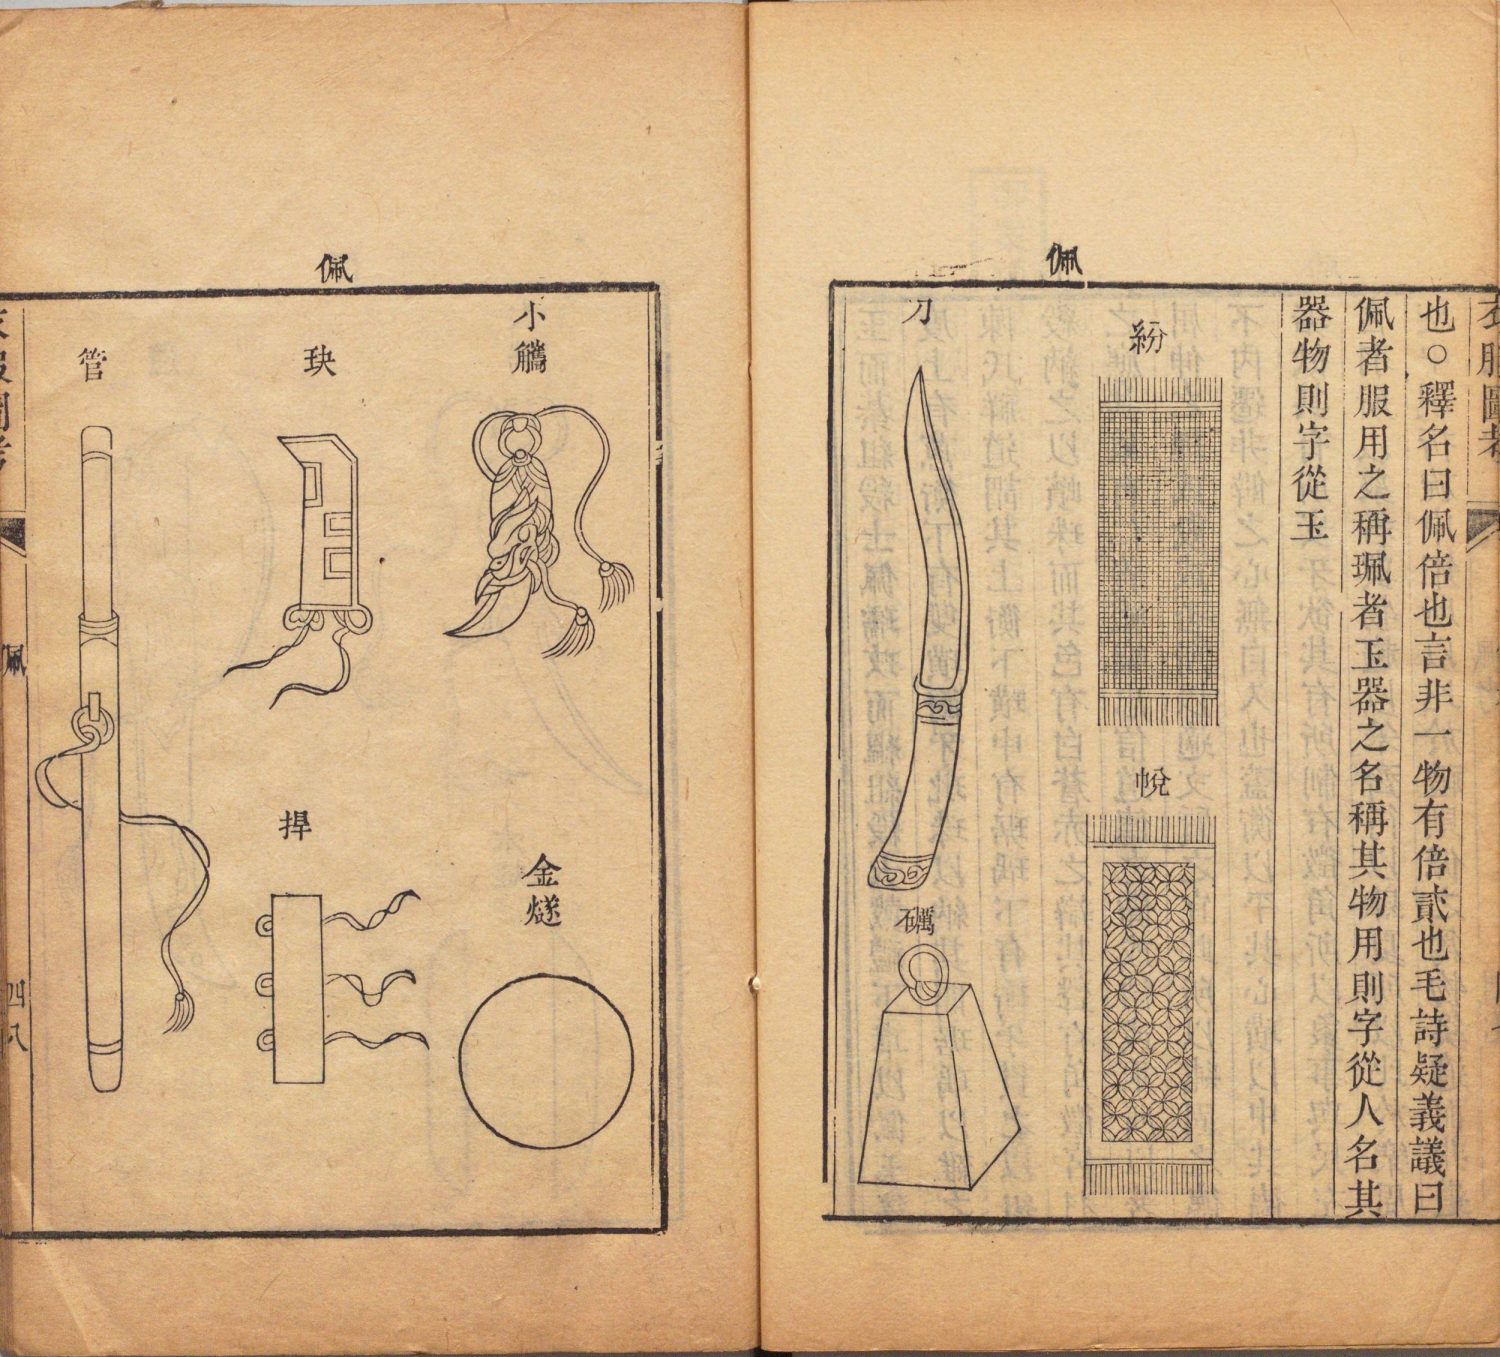 佩
衣服圖考
也○釋名曰佩倍也言非一物有倍貳也毛詩疑義議曰
佩者服用之稱珮者玉器之名稱其物用則字從人名其
器物則字從玉
紛
帨
刀
礪
佩
小觿
金燧
玦
捍
管
衣服圖考
佩
四八